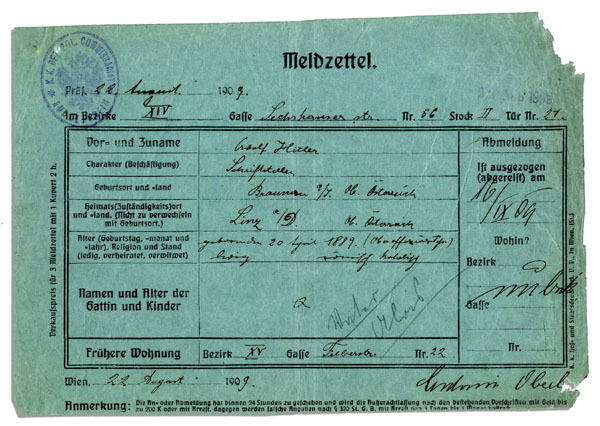 Meldzettel.
Präs. 22 August 1909.
Am Bezirke XIV Gasse Sechshauser str. Nr. 56 Stock II Tür Nr. 21
Vor- und Zuname Adolf Hitler
Charakter (Beschäftigung) Schriftsteller
Geburtsort und -land Braunau a/I. Ob. Österreich
Heimats(Zuständigkeits)ort und -land. (Nicht zu verwechseln mit Geburtsort.) Linz a/D. Ob. Österreich
Alter (Geburtstag, -monat und -jahr), Religion und Stand (ledig, verheiratet, verwitwet) geboren den 20 April 1889.
ledig römisch katholisch
Namen und Alter der Gattin und Kinder
Frühere Wohnung Bezirk XV Gasse Felberstr. Nr. 22
Abmeldung
Ist ausgezogen (abgereist) am
16/IX 09
Wohin?
Bezirk
Gasse
Nr.
Wien, 22 August 1909.
Anmerkung: Die An- oder Abmeldung hat binnen 24 Stunden zu geschehen und wird die Außerachtlassung nach den bestehenden Vorschriften mit Geld bis
zu 200 K oder mit Arrest, dagegen werden falsche Angaben nach § 320 St. G. B. mit Arrest
Verkaufspreis für 3 Meldzettel mit 1 Kuvert 2 h.